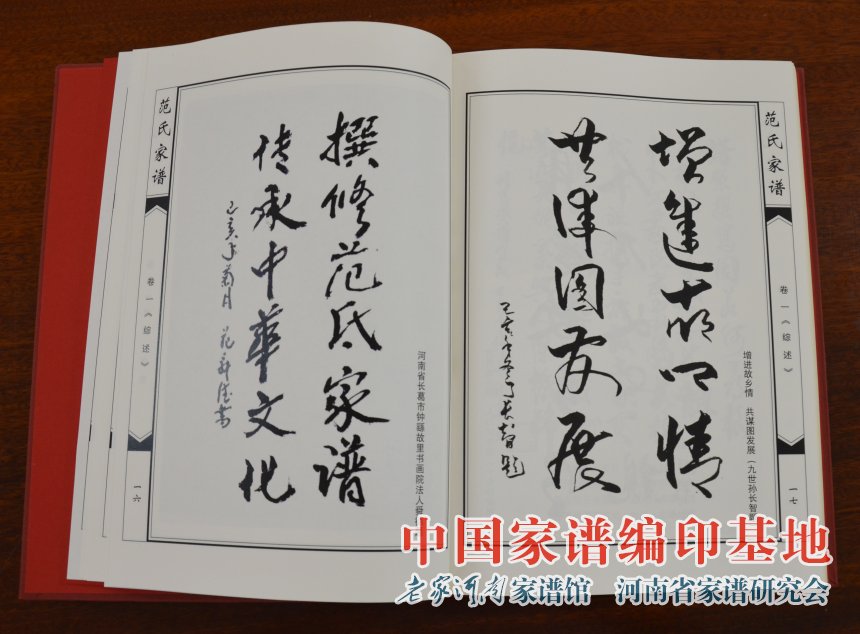 范氏家谱
卷一《综述》
一六
撰修范氏家谱
传承中华文化
己亥年菊月
河南省长葛市钟繇故里书画院法人
范氏家谱
卷一《综述》
一七
增进故乡情
共谋图发展
增进故乡情 共谋图发展（九世孙长智
中国家谱编印基地
老家河南家谱馆 河南省家谱研究会